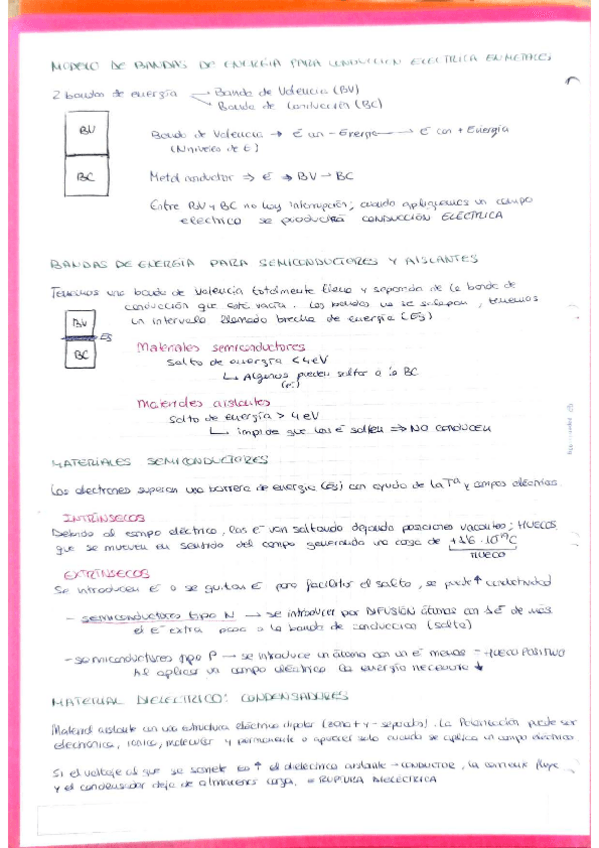 MODELO DE BANDAS DE ENERGÍA PARA CONDUCCION ELECTRICA EN METALES
2 bandas de energía → Banda de Valencia (BV)
→ Banda de Conducción (BC)
BV
BC
Banda de Valencia → é con - Energía → é con + Energía
(N niveles de E)
Metal conductor ⇒ é → BV → BC
Entre BV y BC no hay interrupción; cuando apliquemos un campo
eléctrico se producirá CONDUCCIÓN ELÉCTRICA
BANDAS DE ENERGÍA PARA SEMICONDUCTORES Y AISLANTES
Tenemos una banda de valencia totalmente llena y separada de la banda de
conducción que está vacía. Las bandas no se solapan, tenemos
un intervalo llamado brecha de energía (Eg)
BV
Eg
BC
Materiales semiconductores
Salto de energía < 4eV
↳ Algunos pueden saltar a la BC
(é)
Materiales aislantes
Salto de energía > 4eV
↳ impide que los é salten ⇒ NO CONDUCEN
MATERIALES SEMICONDUCTORES
Los electrones superan una barrera de energía (Eg) con ayuda de la Tª y campos eléctricos
INTRÍNSECOS
Debido al campo eléctrico, los e⁻ van saltando dejando posiciones vacantes; HUECOS
que se mueven en sentido del campo generando una carga de +1,6·10⁻¹⁹C
HUECO
EXTRÍNSECOS
Se introducen é o se quitan é para facilitar el salto, se puede ↑ conductividad
- semiconductores tipo N → se introducen por DIFUSIÓN átomos con 1é de más
el e⁻ extra pasa a la banda de conducción (salta)
- semiconductores tipo P → se introduce un átomo con un e⁻ menos = HUECO POSITIVO
Al aplicar un campo eléctrico la energía necesaria ↓
MATERIAL DIELÉCTRICO: CONDENSADORES
Material aislante con una estructura eléctrica dipolar (zona + y - separadas). La Polarización puede ser
electrónica, iónica, molecular y permanente o aparecer solo cuando se aplica un campo eléctrico
Si el voltaje al que se somete es ↑ el dieléctrico aislante → CONDUCTOR, la corriente fluye
y el condensador deja de almacenar carga. = RUPTURA DIELÉCTRICA